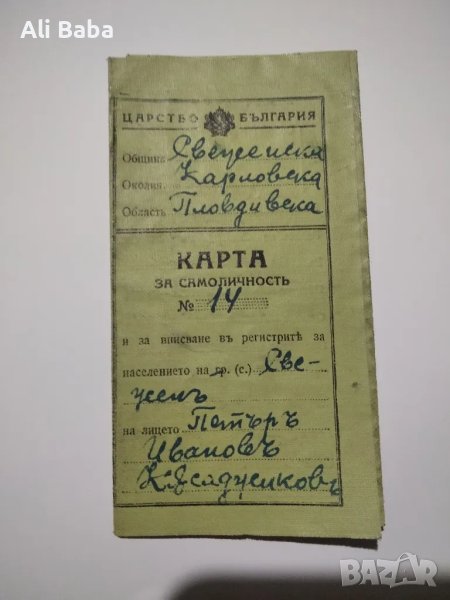 Ali Baba
ЦАРСТВО БЪЛГАРИЯ
Община Свеженска
Околия Карловска
Область Пловдивска
КАРТА
ЗА САМОЛИЧНОСТЬ
№ 14
и за вписване въ регистритѣ за
населението на гр. (с.) Све-
женъ
на лицето Петъръ
Ивановъ
BAZAR